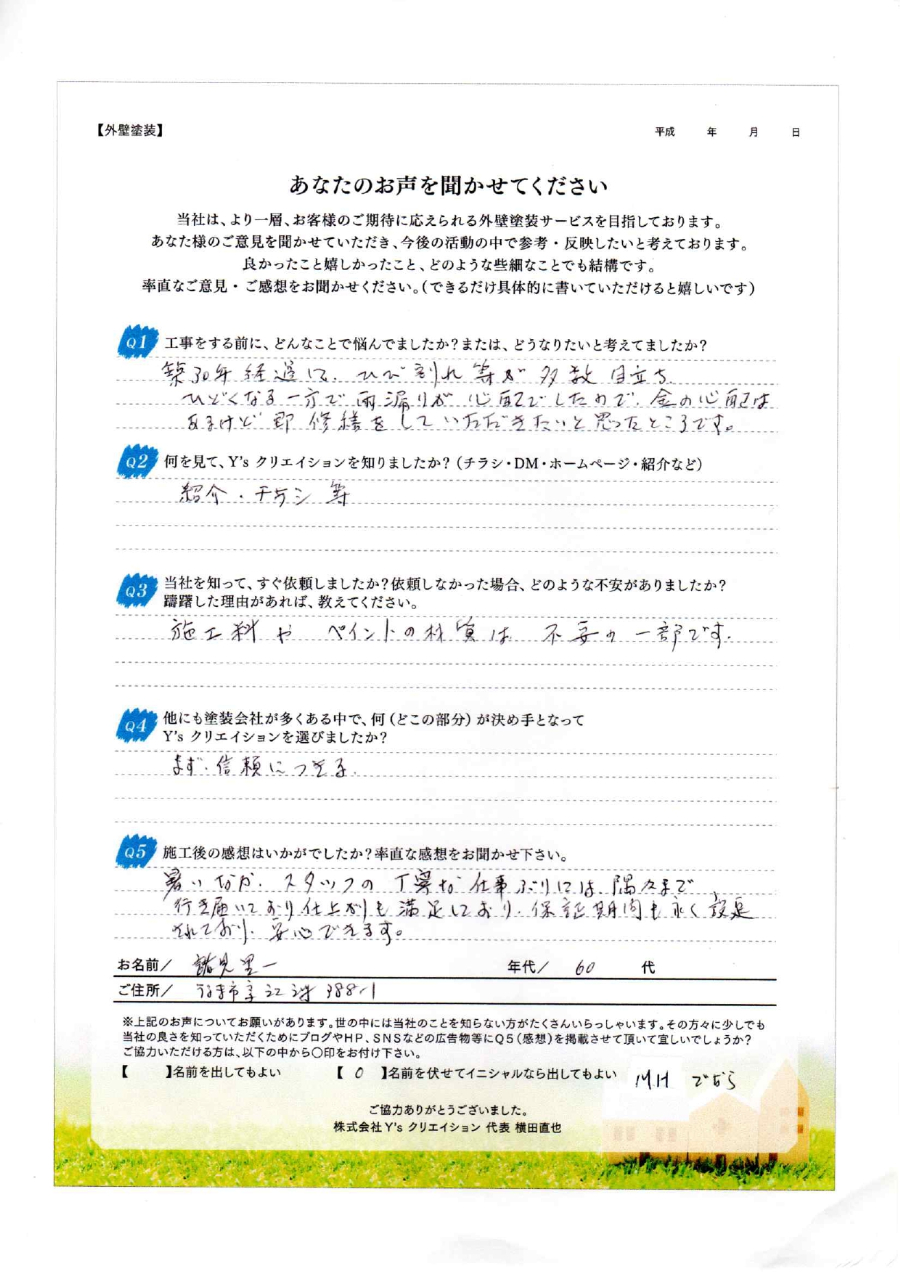 【外壁塗装】
平成 年 月 日
あなたのお声を聞かせてください
当社は、より一層、お客様のご期待に応えられる外壁塗装サービスを目指しております。
あなた様のご意見を聞かせていただき、今後の活動の中で参考・反映したいと考えております。
良かったこと嬉しかったこと、どのような些細なことでも結構です。
率直なご意見・ご感想をお聞かせください。(できるだけ具体的に書いていただけると嬉しいです)
Q1 工事をする前に、どんなことで悩んでましたか?または、どうなりたいと考えてましたか?
築30年経過にて、ひび割れ等が多数目立ち
ひどくなる一方で雨漏りが心配でしたので、金の心配は
あるけど即修繕をしていただきたいと思ったところです。
Q2 何を見て、Y's クリエイションを知りましたか?(チラシ・DM・ホームページ・紹介など)
紹介・チラシ等
Q3 当社を知って、すぐ依頼しましたか?依頼しなかった場合、どのような不安がありましたか?
躊躇した理由があれば、教えてください。
施工料や ペイントの材質は 不安の一部です。
Q4 他にも塗装会社が多くある中で、何(どこの部分)が決め手となって
Y's クリエイションを選びましたか?
まず、信頼につきる。
Q5 施工後の感想はいかがでしたか?率直な感想をお聞かせ下さい。
暑いなか、スタッフの丁寧な仕事ぶりには、隅々まで
行き届いており仕上がりも満足しており、保証期間も永く設定
されており、安心できます。
お名前/ 諸見里一 年代/ 60 代
ご住所/ うるま市字江洲388-1
※上記のお声についてお願いがあります。世の中には当社のことを知らない方がたくさんいらっしゃいます。その方々に少しでも
当社の良さを知っていただくためにブログやHP、SNSなどの広告物等にQ5(感想)を掲載させて頂いて宜しいでしょうか?
ご協力いただける方は、以下の中から〇印をお付け下さい。
【 】名前を出してもよい 【 〇 】名前を伏せてイニシャルなら出してもよい M.H でなら
ご協力ありがとうございました。
株式会社Y's クリエイション 代表 横田直也